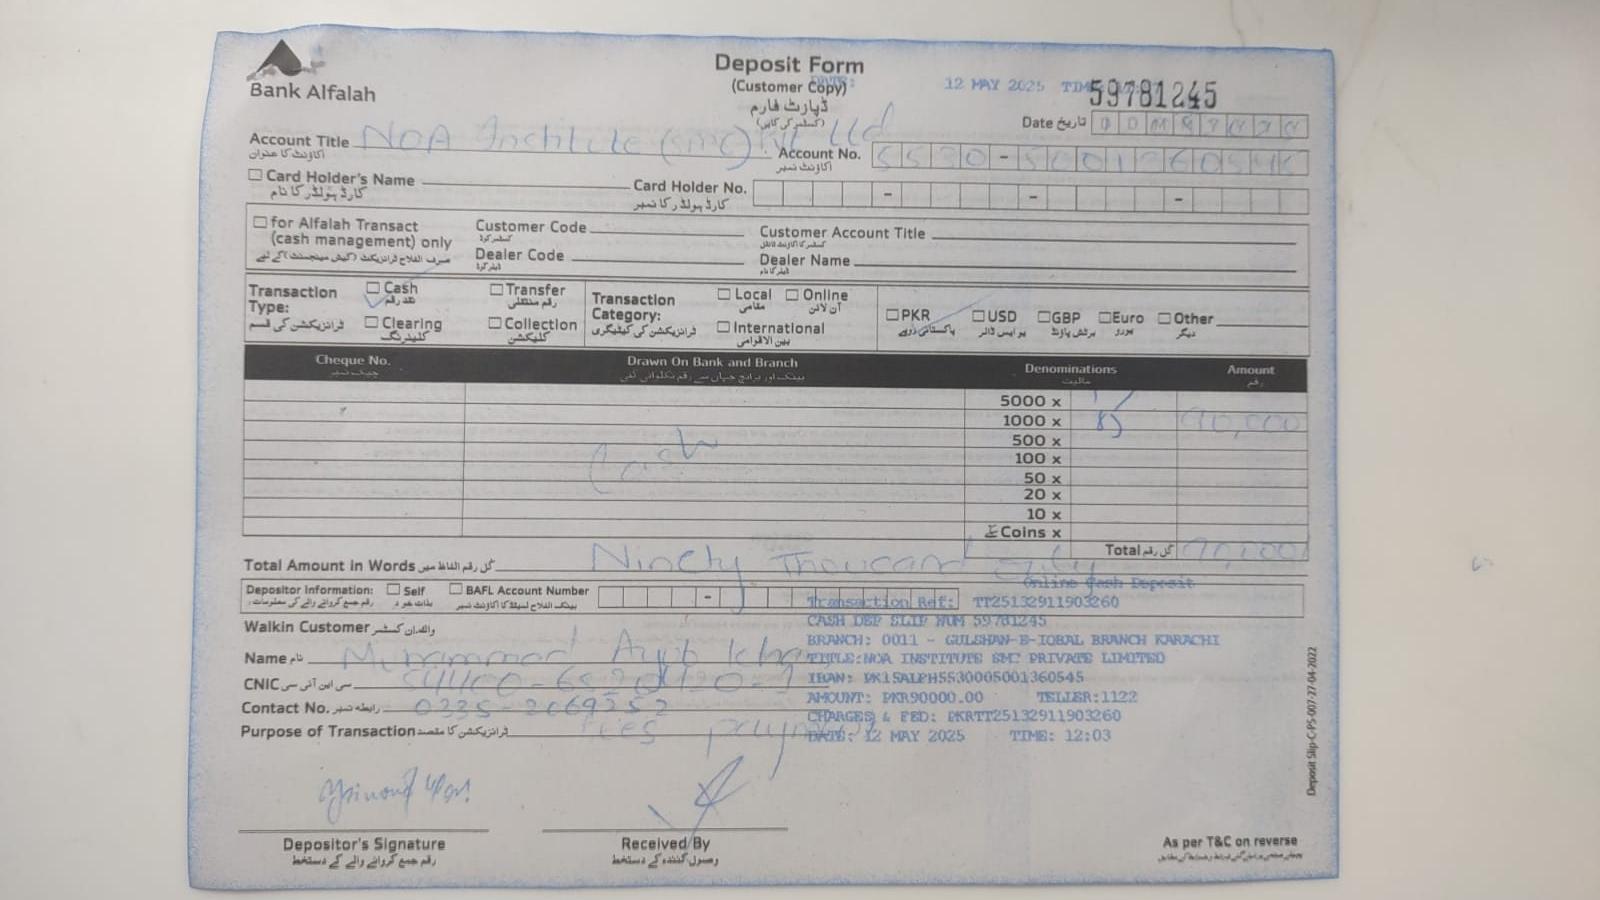 Bank Alfalah
Deposit Form
(Customer Copy)
ڈپازٹ فارم
(کسٹمر کی کاپی)
DATE: 12 MAY 2025 TIME
59781245
Date تاریخ
Account Title NOA Institute (smc) Pvt Ltd
اکاؤنٹ کا عنوان
Account No. 5530-5001360545
اکاؤنٹ نمبر
Card Holder's Name
کارڈ ہولڈر کا نام
Card Holder No.
کارڈ ہولڈر کا نمبر
for Alfalah Transact
(cash management) only
صرف الفلاح ٹرانزیکٹ (کیش مینجمنٹ) کے لیے
Customer Code
کسٹمر کوڈ
Customer Account Title
کسٹمر اکاؤنٹ ٹائٹل
Dealer Code
ڈیلر کوڈ
Dealer Name
ڈیلر کا نام
Transaction Type:
ٹرانزیکشن کی قسم
Cash نقد رقم
Transfer رقم منتقلی
Clearing کلیئرنگ
Collection کلیکشن
Transaction Category:
ٹرانزیکشن کی کیٹیگری
Local مقامی
Online آن لائن
International بین الاقوامی
PKR پاکستانی روپے
USD یو ایس ڈالر
GBP برٹش پاؤنڈ
Euro یورو
Other دیگر
Cheque No. چیک نمبر
Drawn On Bank and Branch
بینک اور برانچ جہاں سے رقم نکلوائی گئی
Denominations مالیت
Amount رقم
5000 x 1
1000 x 85 90,000
500 x
100 x
Cash
50 x
20 x
10 x
سکے Coins x
Total کل رقم 90,000
Total Amount in Words کل رقم الفاظ میں Ninety Thousand Only
Online Cash Deposit
Depositor Information:
رقم جمع کروانے والے کی معلومات:
Self بذات خود
BAFL Account Number
بینک الفلاح لمیٹڈ کا اکاؤنٹ نمبر
Transaction Ref: TT25132911903260
CASH DEP SLIP NUM 59781245
Walkin Customer واک ان کسٹمر
BRANCH: 0011 - GULSHAN-E-IQBAL BRANCH KARACHI
Name نام Muhammad Ayub Khan
TITLE:NOA INSTITUTE SMC PRIVATE LIMITED
CNIC سی این آئی سی
IBAN: PK15ALFH5530005001360545
AMOUNT: PKR90000.00 TELLER:1122
Contact No. رابطہ نمبر 0335-2069252
CHARGES & FED: PKRTT25132911903260
Purpose of Transaction ٹرانزیکشن کا مقصد fees payment
DATE: 12 MAY 2025 TIME: 12:03
Depositor's Signature
رقم جمع کروانے والے کے دستخط
Received By
وصول کنندہ کے دستخط
As per T&C on reverse
Deposit Slip-C-PS-007/27-04-2022